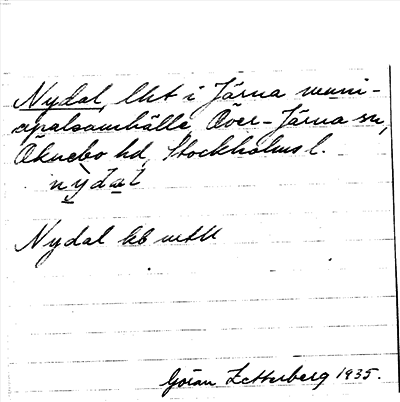 Nydal, lht i Järna muni-
cipalsamhälle, Över-Järna sn,
Öknebo hd, Stockholms l.
nỳdal
Nydal kb mtll
Göran Zetterberg 1935.